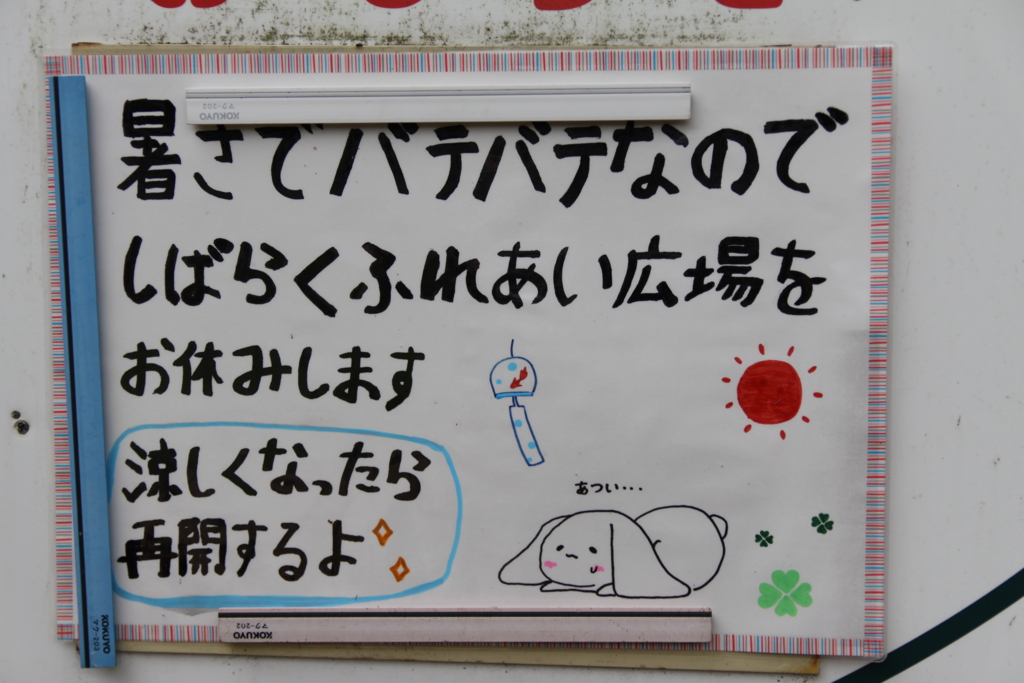 KOKUYO
マク-202
暑さでバテバテなので
しばらくふれあい広場を
お休みします
涼しくなったら
再開するよ
あつい・・・
KOKUYO
マク-203
KOKUYO
マク-202